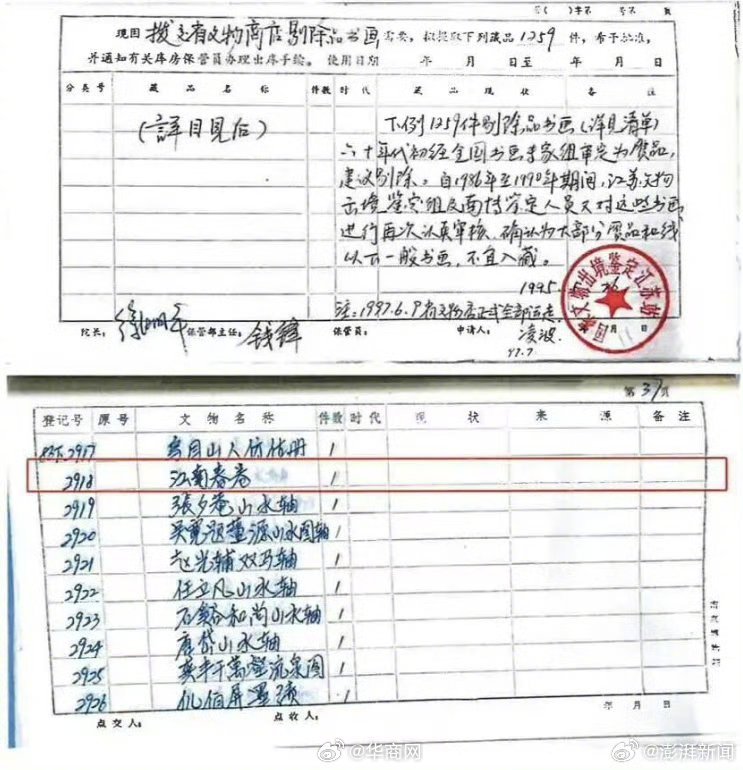 第( )字第 号第 页
现因 拨交省文物商店剔除品书画 需要,拟提取下列藏品 1259 件,希予批准,
并通知有关库房保管员办理出库手续。 使用日期 年 月 日至 年 月 日
分类号 藏品名称 件数 时代 藏品现状 备注
(詳目見后)
下例1259件剔除品书画(详见清单)
六十年代初经全国书画专家组审定为贋品,
建议剔除。自1986年至1990年期间,江苏文物
出境鉴定组及南博鉴定人员又对这些书画
进行再次认真审核,确认为大部分贋品和线
以下一般书画,不宜入藏。
1995
国家文物出境鉴定江苏站
注:1997.6.9
院长: 徐湖平 保管部主任: 钱锋 保管员: 申请人: 凌波
97.7
第 37 页
登记号 原号 文物名称 件数 时代 现状 来源 备注
2917 乌目山人仿古册 1
2918 江南春卷 1
2919 張夕庵山水轴 1
2920 吴寛题董源山水图轴 1
2921 赵光辅双马轴 1
2922 任立凡山水轴 1
2923 石谿和尚山水轴 1
2924 唐岱山水轴 1
2925 奚丰千萬壑流泉图 1
2926 仇伯屏墨 1
点交人: 点收人: 年 月 日
@华商网 @澎湃新闻